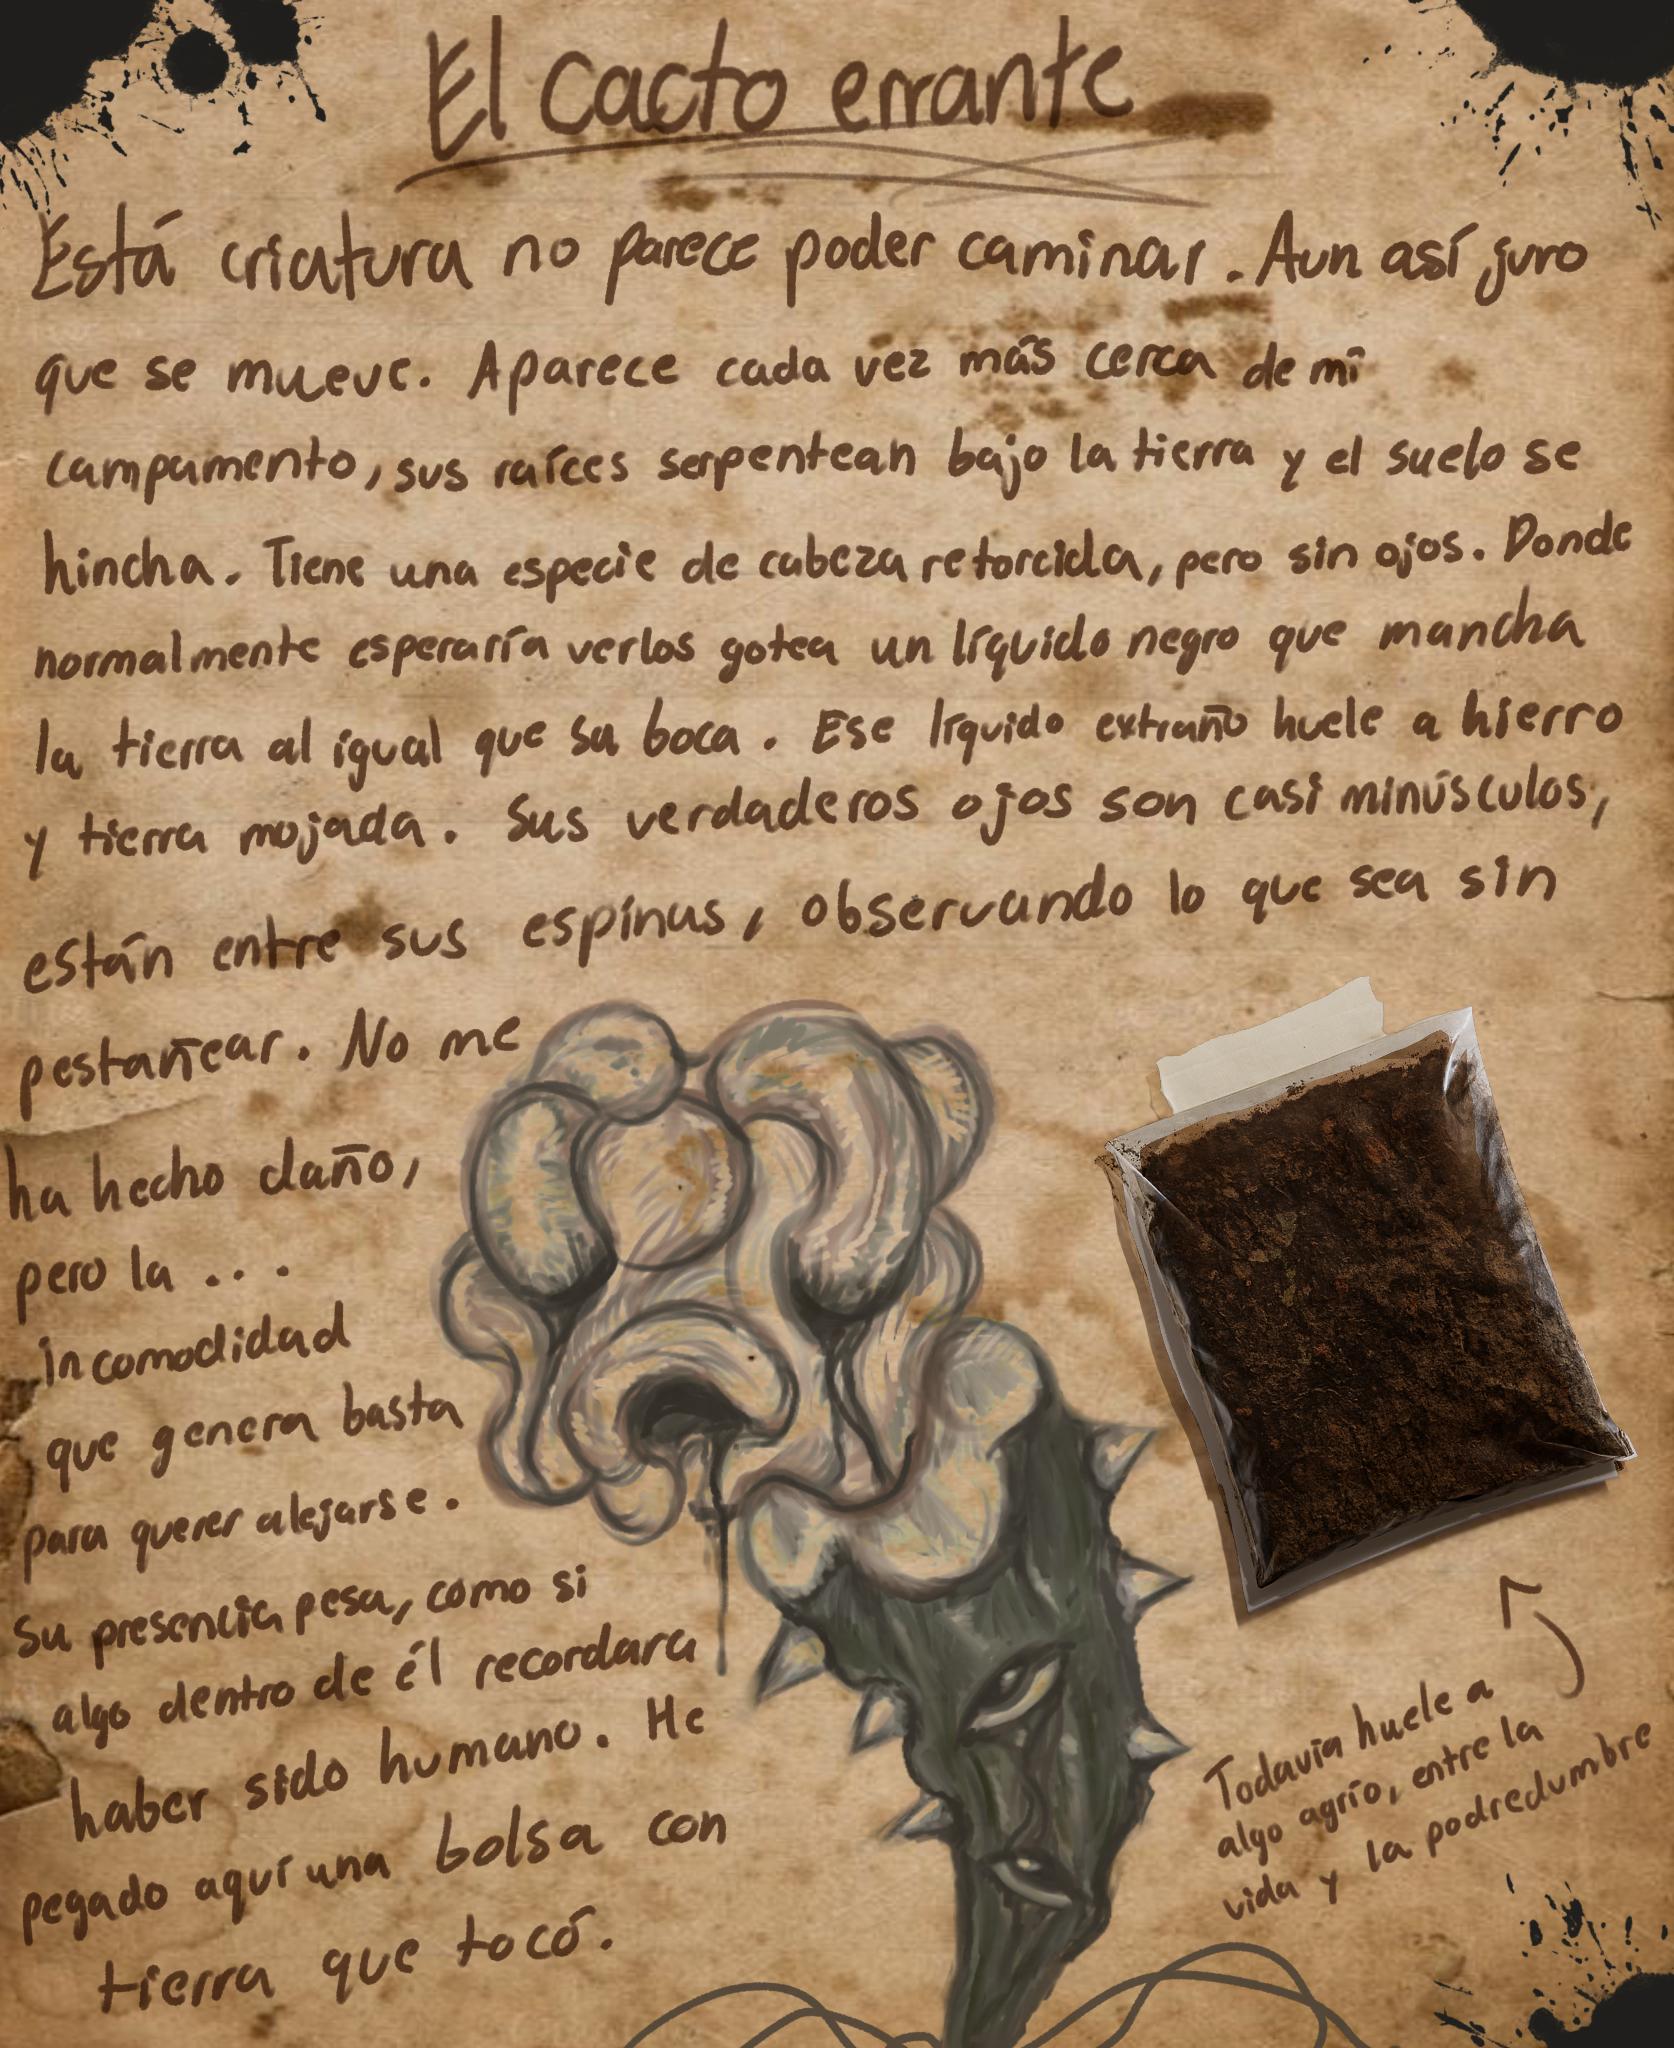 El cacto errante
Está criatura no parece poder caminar. Aun así juro
que se mueve. Aparece cada vez más cerca de mi
campamento, sus raíces serpentean bajo la tierra y el suelo se
hincha. Tiene una especie de cabeza retorcida, pero sin ojos. Donde
normalmente esperaría verlos gotea un líquido negro que mancha
la tierra al igual que su boca. Ese líquido extraño huele a hierro
y tierra mojada. Sus verdaderos ojos son casi minúsculos,
están entre sus espinas, observando lo que sea sin
pestañear. No me
ha hecho daño,
pero la ...
incomodidad
que genera basta
para querer alejarse.
Su presencia pesa, como si
algo dentro de él recordara
haber sido humano. He
pegado aquí una bolsa con
tierra que tocó.
Todavía huele a
algo agrío, entre la
vida y la podredumbre